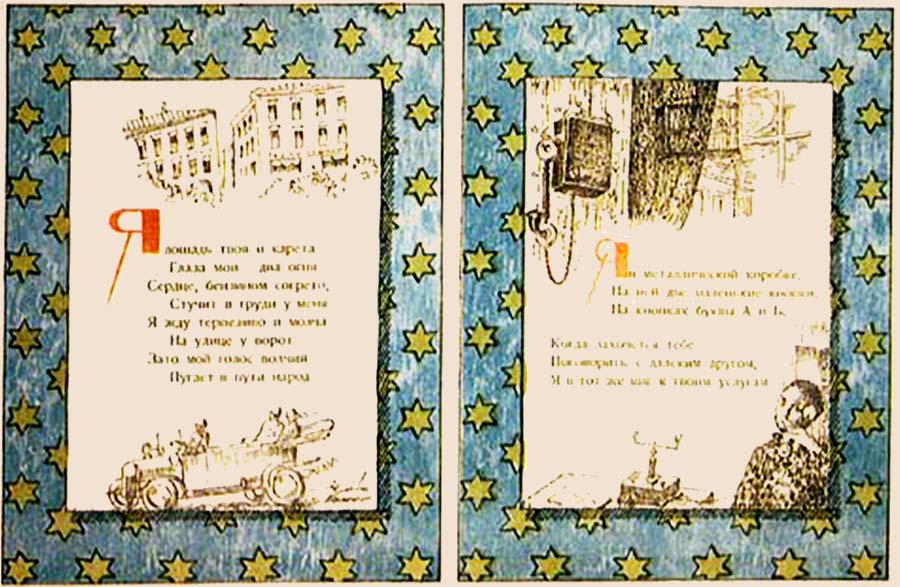 Я лошадь твоя и карета
Глаза мои два огня
Сердце, бензином согрето,
Стучит в груди у меня
Я жду терпеливо и молча
На улице у ворот
Зато мой голос волчий
Пугает в пути народ
Я в металлической коробке,
На ней две маленькие кнопки,
На кнопках буквы А и Б,
Когда захочется тебе
Поговорить с далеким другом,
Я в тот же миг к твоим услугам